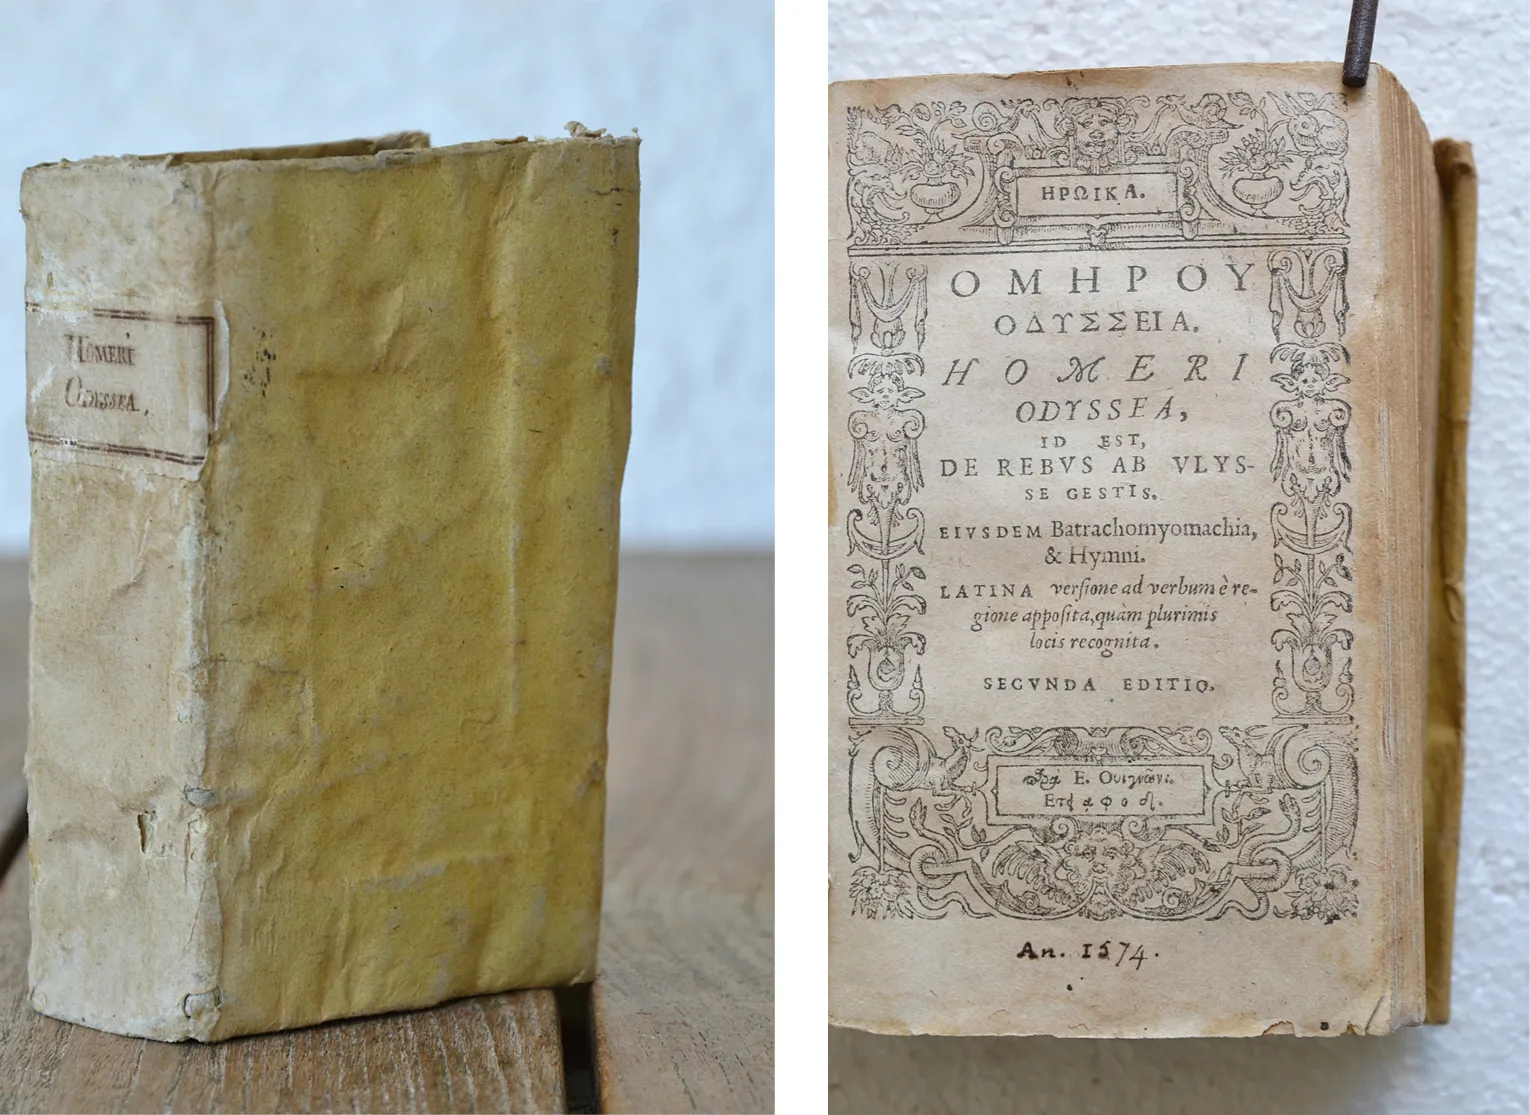 HOMERI
ODYSSEA,
ΗΡΩΙΚΑ.
ΟΜΗΡΟΥ
ΟΔΥΣΣΕΙΑ.
HOMERI
ODYSSEA,
ID EST,
DE REBVS AB VLYS-
SE GESTIS.
EIVSDEM Batrachomyomachia,
& Hymni.
LATINA verſione ad verbum è re-
gione appoſita, quàm plurimis
locis recognita.
SECVNDA EDITIO.
Ε. Ουιγνῶνι.
α φ ο δ.
An. 1574.